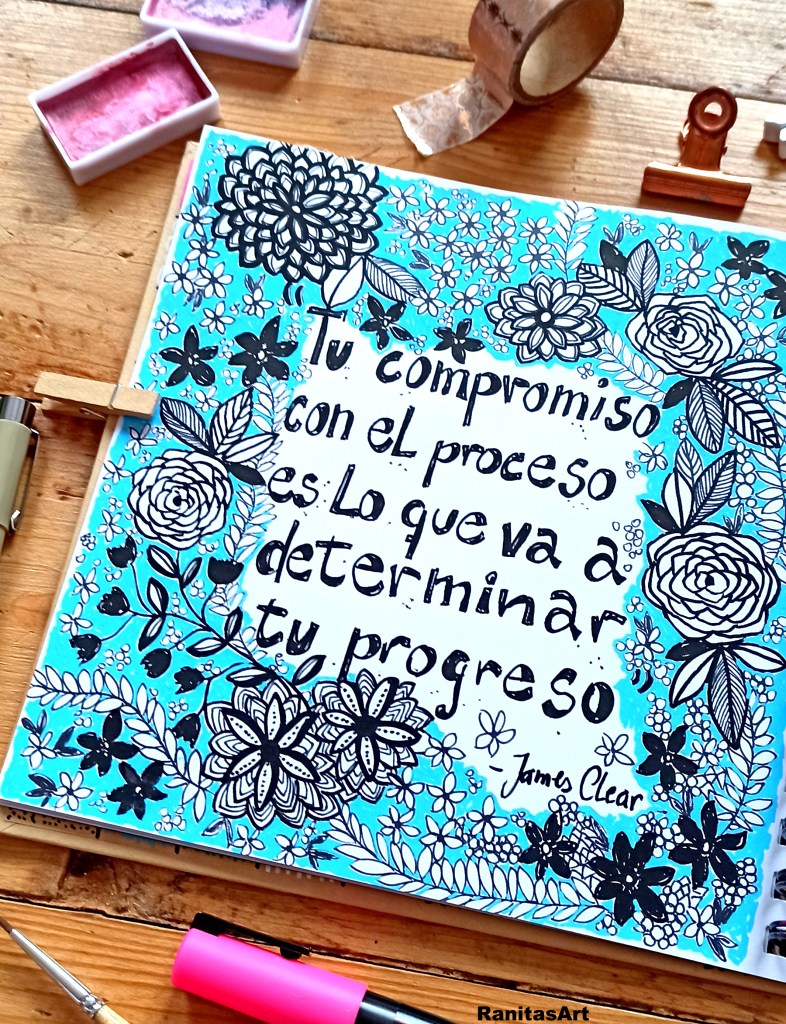 Tu compromiso
con el proceso
es lo que va a
determinar
tu progreso
- James Clear
RanitasArt